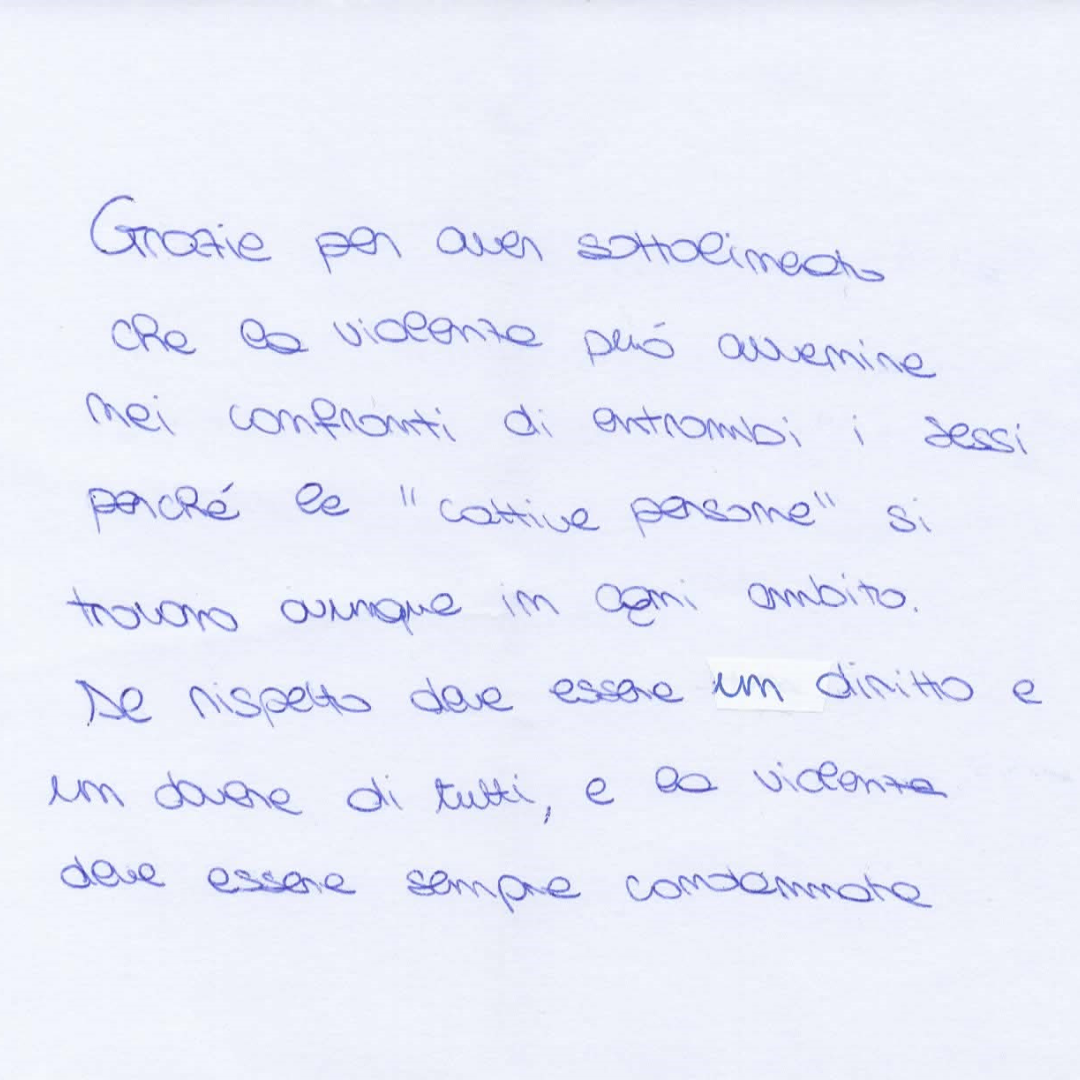 Grazie per aver sottolineato
che la violenza può avvenire
nei confronti di entrambi i sessi
perché le "cattive persone" si
trovano ovunque in ogni ambito.
Il rispetto deve essere un diritto e
un dovere di tutti, e la violenza
deve essere sempre condannata